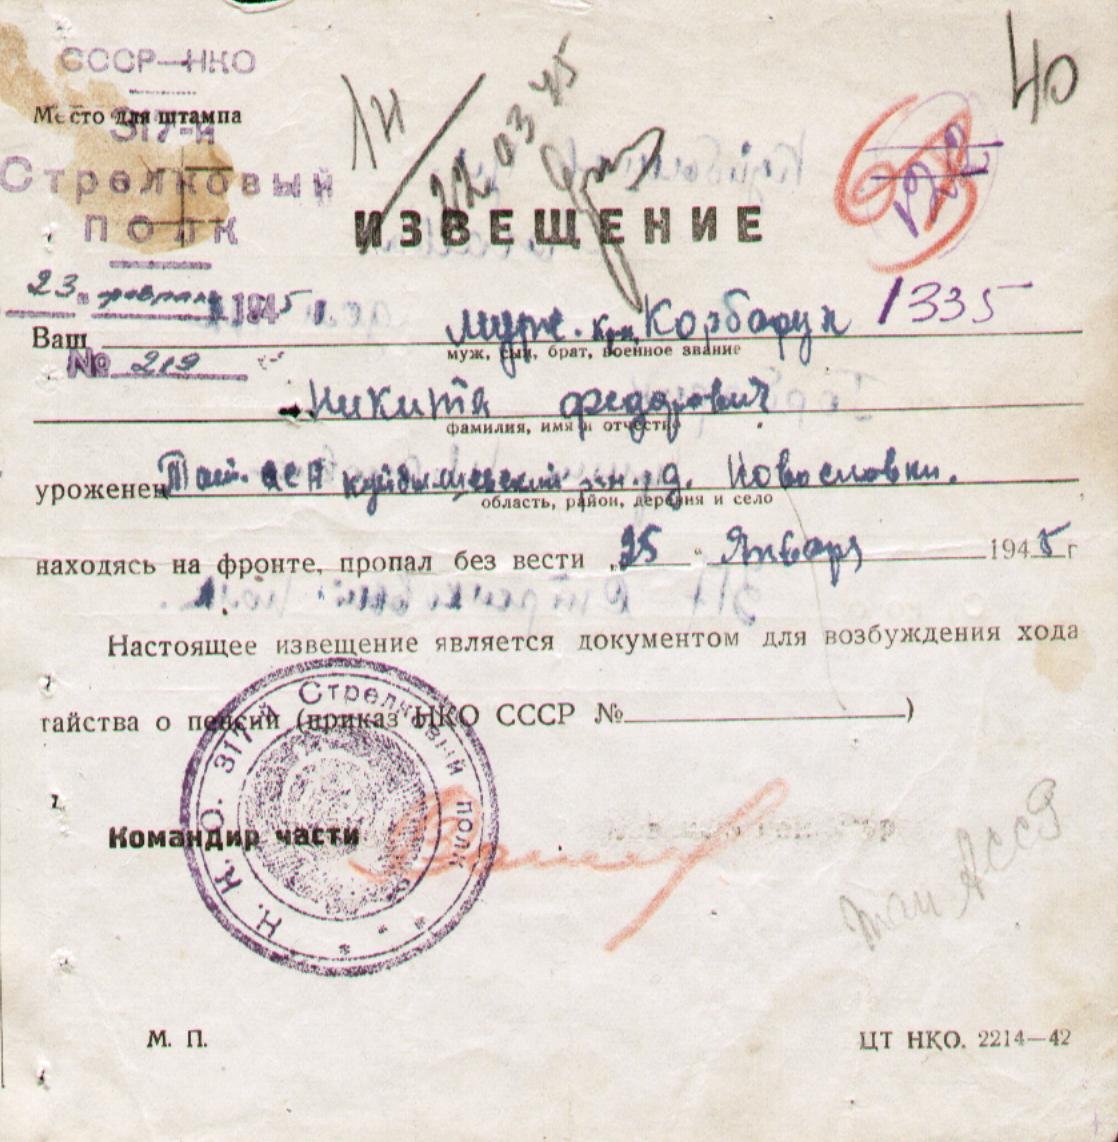 СССР—НКО
40
Место для штампа
317-й
Стрелковый
ПОЛК
22 03 45
ИЗВЕЩЕНИЕ
23 " февраля 1945
1335
Ваш муж. кр. Корбарук
муж, сын, брат, военное звание
№ 219
Никита федорович
фамилия, имя и отчество
уроженец Тат. АССР Куйбышевский р-н. д. Новословки.
область, район, деревня и село
находясь на фронте, пропал без вести „25 " Января 1945 г
Настоящее извещение является документом для возбуждения хода
тайства о пенсии (приказ НКО СССР № )
Н. К. О. 317-й Стрелковый полк
Командир части
Тат АССР
М. П.
ЦТ НКО. 2214—42